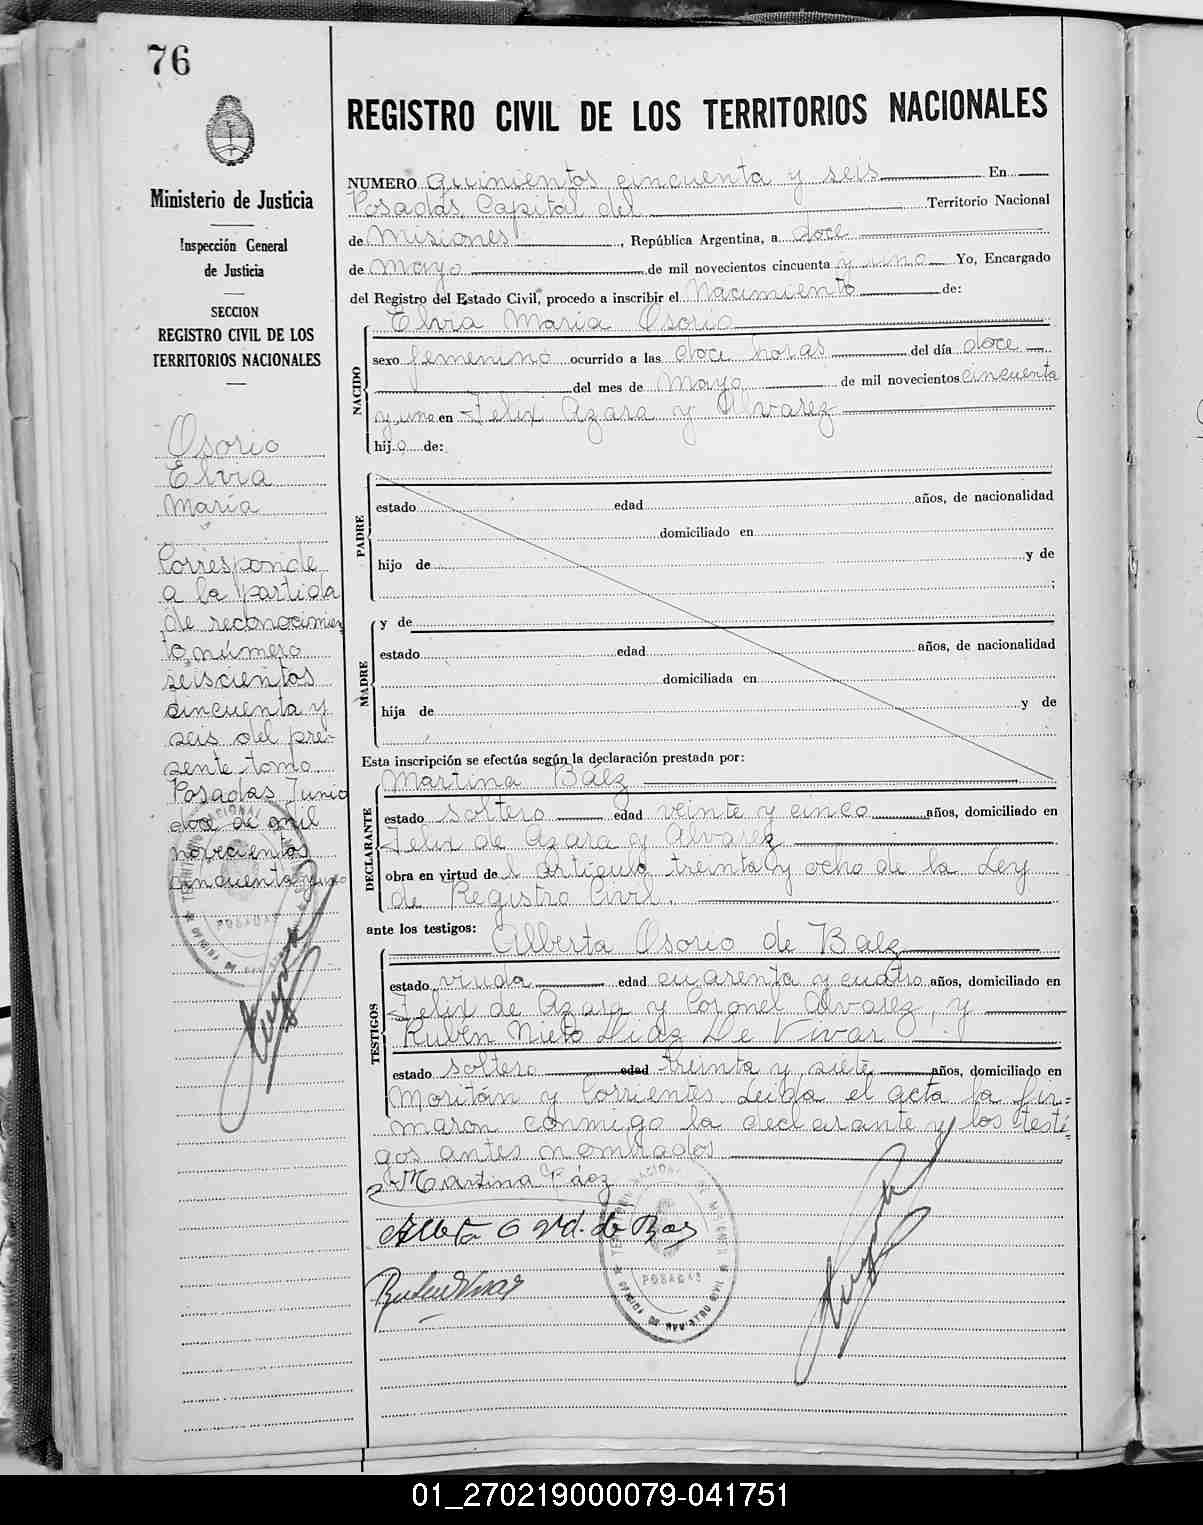 76
Ministerio de Justicia
Inspección General
de Justicia
SECCION
REGISTRO CIVIL DE LOS
TERRITORIOS NACIONALES
Osorio
Elvia
María
Corresponde
a la partida
de reconocimien
to número
seiscientos
cincuenta y
seis del pre-
sente tomo
Posadas Junio
doce de mil
novecientos
cincuenta y uno
REGISTRO CIVIL DE LOS TERRITORIOS NACIONALES
NUMERO quinientos cincuenta y seis En
Posadas Capital del Territorio Nacional
de Misiones, República Argentina, a doce
de Mayo de mil novecientos cincuenta y uno Yo, Encargado
del Registro del Estado Civil, procedo a inscribir el Nacimiento de:
Elvia María Osorio
NACIDO
sexo femenino ocurrido a las doce horas del día doce
del mes de Mayo de mil novecientos cincuenta
y uno en Felix Azara y Alvarez
hij o de:
PADRE
estado edad años, de nacionalidad
domiciliado en
hijo de y de
;
y de
MADRE
estado edad años, de nacionalidad
domiciliada en
hija de y de
Esta inscripción se efectúa según la declaración prestada por:
Martina Baez
DECLARANTE
estado soltera edad veinte y cinco años, domiciliado en
Felix de Azara y Alvarez
obra en virtud del artículo treinta y ocho de la Ley
de Registro Civil.
ante los testigos:
Alberta Osorio de Baez
TESTIGOS
estado viuda edad cuarenta y cuatro años, domiciliado en
Felix de Azara y Coronel Alvarez, y
Ruben Nieto Diaz De Vivar
estado soltero edad treinta y siete años, domiciliado en
Moritán y Corrientes. Leida el acta la fir-
maron conmigo la declarante y los testi-
gos antes nombrados
Martina Báez
POSADAS
01_270219000079-041751